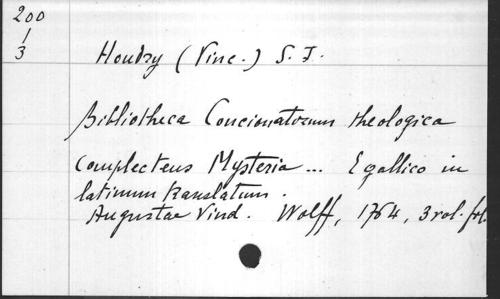 200
/
3
Houdry (Vinc.) S.J.
Bibliotheca Concionatorum theologica
complectens Mysteria ... E gallico in
latinum translatum.
Augustae Vind. Wolff, 1764, 3 vol. fol.